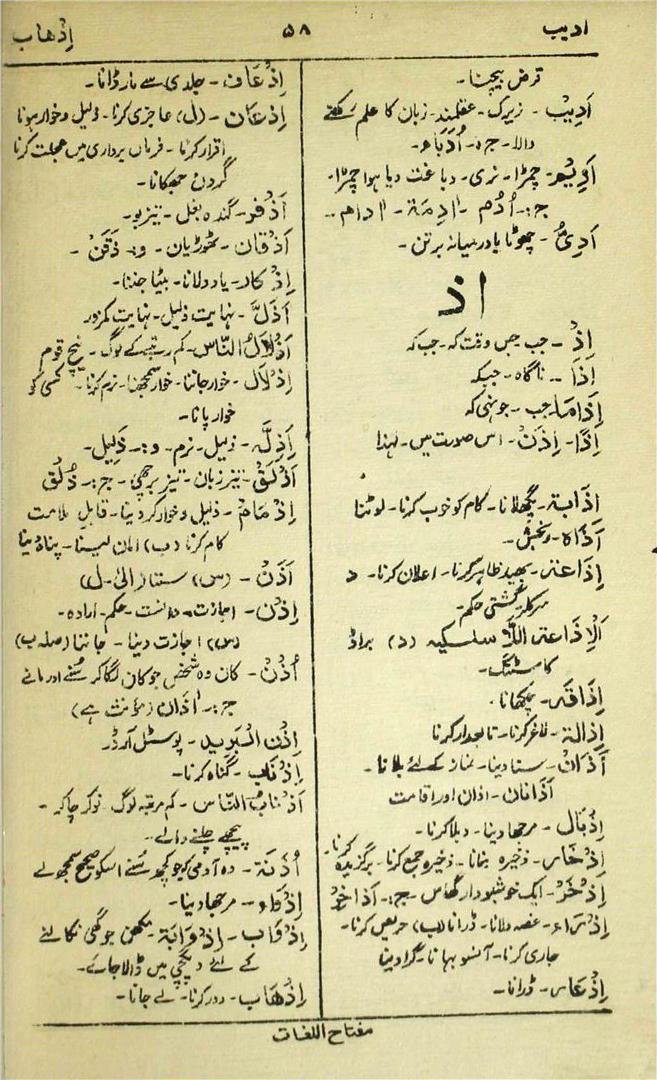 ادیب
۵۸
اِذھاب
قرض بیچنا۔
اَدِیْبٌ ۔ زیرک ۔ عقلمند ۔ زبان کا علم رکھنے
والا ۔ جمع ۔ اُدَبَاء ۔
چمڑا ۔ نری ۔ دباغت دیا ہوا چمڑا ۔
ج:۔ اُدُم ۔ اٰدِمَة ۔ اٰدام ۔
اَدِیٌّ ۔ چھوٹا یا درمیانہ برتن ۔
اذ
اِذْ ۔ جب جس وقت کہ ۔ جب کہ
اِذَا ۔ ناگاہ ۔ جبکہ
اِذَامَا ۔ جب ۔ جونہی کہ
اِذًا ۔ اِذَنْ ۔ اس صورت میں ۔ لہٰذا
اِذَابة ۔ پگھلانا ۔ کام کو خوب کرنا ۔ لوٹنا
اَذَاة ۔ رنجش ۔
اِذَاعة ۔ بھید ظاہر کرنا ۔ اعلان کرنا ۔ د
سرکلر گشتی حکم ۔
اَلْاِذَاعة اللَّاسلکیہ (د) براڈ
کاسٹنگ ۔
اِذَاقَہ ۔ چکھانا ۔
اِذَالة ۔ کرنا ۔ تابعدار کرنا
اَذَانٌ ۔ سنا دینا ۔ نماز کے لئے بلانا ۔
اَذَانان ۔ اذان اور اقامت
اِذْبَال ۔ مرجھا دینا ۔ دبلا کرنا ۔
اِذْخَار ۔ ذخیرہ بنانا ۔ ذخیرہ جمع کرنا ۔ برگزیدہ کرنا ۔
اِذْخَر ۔ ایک خوشبودار گھاس ۔ ج:۔ اَذَاخِرُ
اِذْرَاء ۔ غصہ دلانا ۔ ڈرانا (ب) حریص کرنا ۔
جاری کرنا ۔ آنسو بہانا ۔ گرا دینا
اِذْعَار ۔ ڈرانا ۔
اِذْعَاف ۔ جلدی سے مار ڈالنا ۔
اِذْعَان ۔ (ل) عاجزی کرنا ۔ ذلیل و خوار ہونا
اقرار کرنا ۔ فرماں برداری میں عجلت کرنا
گردن جھکانا ۔
اَذْفر ۔ گندہ بغل ۔ تیز بو ۔
اَذْقَان ۔ ٹھوڑیاں ۔ و:۔ ذَقَنٌ ۔
اِذْکَار ۔ یاد دلانا ۔ بیٹا جننا ۔
اَذَلّ ۔ نہایت ذلیل ۔ نہایت کمزور
اَذْلَالُ النَّاس ۔ کم رتبے کے لوگ ۔ نیچ قوم
اِذْلَال ۔ خوار جاننا ۔ خوار سمجھنا ۔ نرم کرنا ۔ کسی کو
خوار پانا ۔
اَذِلَّہ ۔ ذلیل ۔ نرم ۔ و:۔ ذَلِیل ۔
اَذْلَقْ ۔ تیز زبان ۔ تیز برچھی ۔ ج:۔ ذُلْق
اِذْمَام ۔ ذلیل و خوار کر دینا ۔ قابل ملامت
کام کرنا (ب) امان لینا ۔ پناہ دینا
اَذَنٌ ۔ (س) سننا (الیٰ ۔ ل)
اِذْن ۔ اجازت ۔ دانست ۔ حکم ۔ ارادہ ۔
(س) اجازت دینا ۔ جاننا (صلہ ب)
اُذُن ۔ کان وہ شخص جو کان لگا کر سُنے اور مانے
ج:۔ اٰذان (مؤنث ہے)
اِذْن الْبَرِید ۔ پوسٹل آرڈر
اِذْنَاب ۔ گناہ کرنا ۔
اَذْنَابُ النَّاس ۔ کم مرتبہ لوگ نوکر چاکر ۔
پیچھے چلنے والے ۔
اُذَنَة ۔ وہ آدمی کہ جو کچھ سُنے اسکو صحیح سمجھ لے
اِذْوَاء ۔ مرجھا دینا ۔
اِذْوَاب ۔ اِذْوَابَة ۔ مکھن جو گھی نکالنے
کے لئے دیگچی میں ڈالا جائے ۔
اِذْهَاب ۔ دور کرنا ۔ لے جانا ۔
مفتاح اللغات